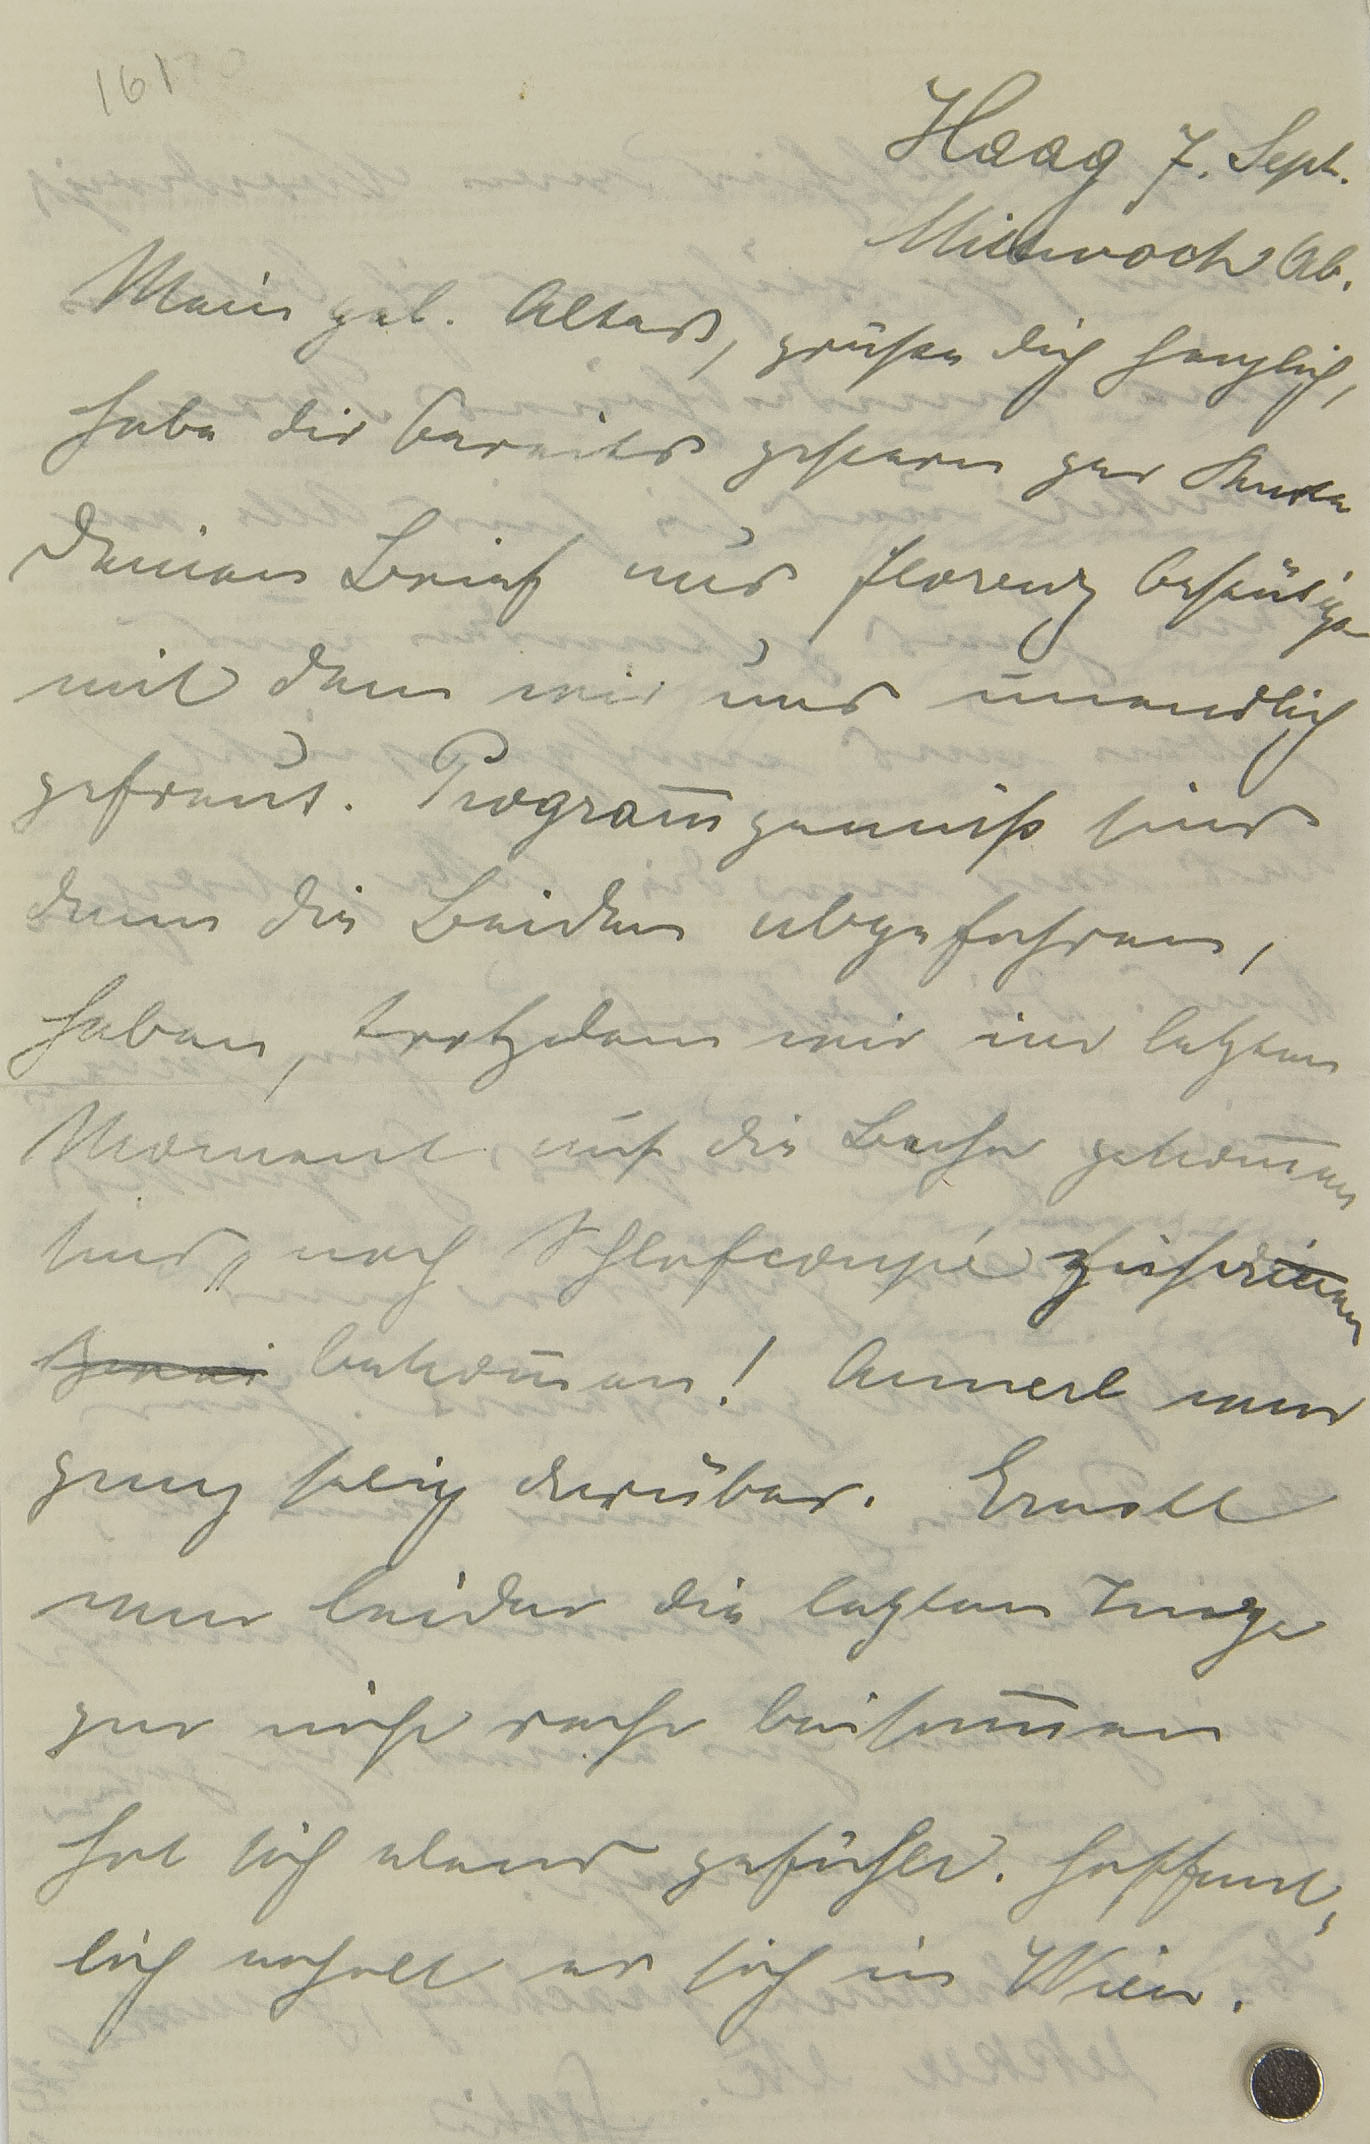 161
Haag 7. Sept.
Mittwoch Ab.
Mein gel. Alters, grüße dich herzlich,
habe dir bereits gestern per Karte
Deinen Brief aus Florenz bestätigt
mit dem wir uns unendlich
gefreut. Program̅gemäß sind
dann die Beiden abgefahren,
haben, trotzdem wir im letzten
Moment auf die Bahn gekom̅en
sind, noch Schlafcoupé
bekom̅en! Annerl war
ganz selig darüber. Ernstl
war leider die letzten Tage
gar nicht recht beisam̅en
hat sich elend gefühlt. Hoffent-
lich erholt er sich in Wien.